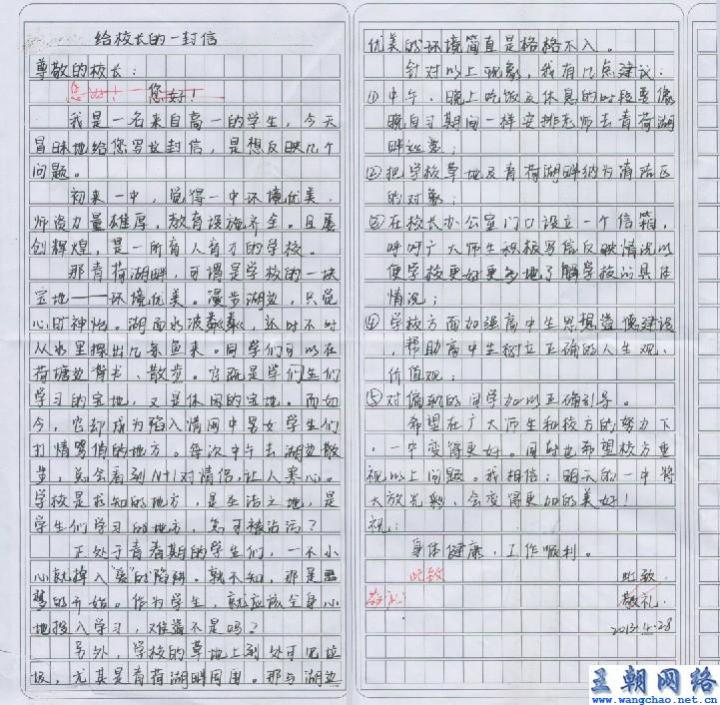 给校长的一封信
尊敬的校长：
您好！ 您好！
我是一名来自高一的学生，今天
冒昧地给您写这封信，是想反映几个
问题。
初来一中，觉得一中环境优美，
师资力量雄厚，教育设施齐全。且屡
创辉煌，是一所育人育才的学校。
那青荷湖畔，可谓是学校的一块
宝地——环境优美。漫步湖边，只觉
心旷神怡。湖面水波粼粼，还时不时
从水里探出几条鱼来。同学们可以在
荷塘边背书、散步。它既是学们生们
学习的宝地，又是休闲的宝地。而如
今，它却成为陷入情网中男女学生们
打情骂俏的地方。每次中午去湖边散
步，总会看到N+1对情侣，让人寒心。
学校是求知的地方，是圣洁之地，是
学生们学习的地方，怎可被玷污？
正处于青春期的学生们，一不小
心就掉入“爱”的陷阱。孰不知，那是噩
梦的开始。作为学生，就应该全身心
地投入学习，难道不是吗？
另外，学校的草地上到处可见垃
圾，尤其是青荷湖畔周围。那与湖边
优美的环境简直是格格不入。
针对以上现象，我有几点建议：
①中午、晚上吃饭及休息的时段要像
晚自习期间一样安排老师去青荷湖
畔巡查；
②把学校草地及青荷湖畔纳为清洁区
的对象；
③在校长办公室门口设立一个信箱，
呼吁广大师生积极写信反映情况以
便学校更好更多地了解学校的具体
情况；
④学校方面加强高中生思想道德建设
，帮助高中生树立正确的人生观、
价值观；
⑤对偏执的同学加以正确引导。
希望在广大师生和校方的努力下
，一中变得更好。同时也希望校方重
视以上问题。我相信：明天的一中将
大放光彩，会变得更加的美好！
祝：
身体健康，工作顺利。
此致 此致
敬礼 敬礼
2013.4.28
王朝网络
www.wangchao.net.cn